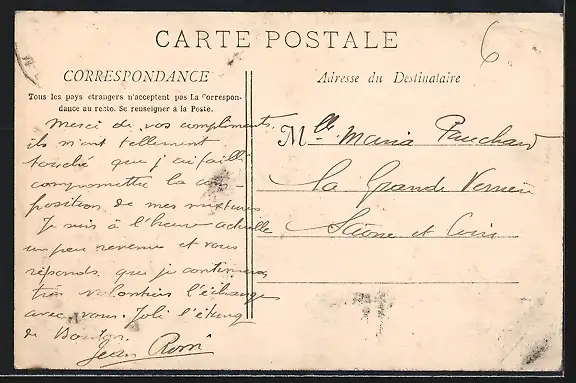 CARTE POSTALE
6
CORRESPONDANCE
Adresse du Destinataire
Tous les pays étrangers n'acceptent pas La Correspon-
dance au recto. Se renseigner à la Poste.
Merci de vos compliments,
ils m'ont tellement
touché que j'ai failli
compromettre la com-
position de mes mixtures
Je suis à l'heure actuelle
un peu revenu et vous
réponds que je continuerai
très volontiers l'échange
avec vous. Joli l'étang
de
Jean
Mlle Maria Pauchard
La Grande Verrerie
Saône et Loire